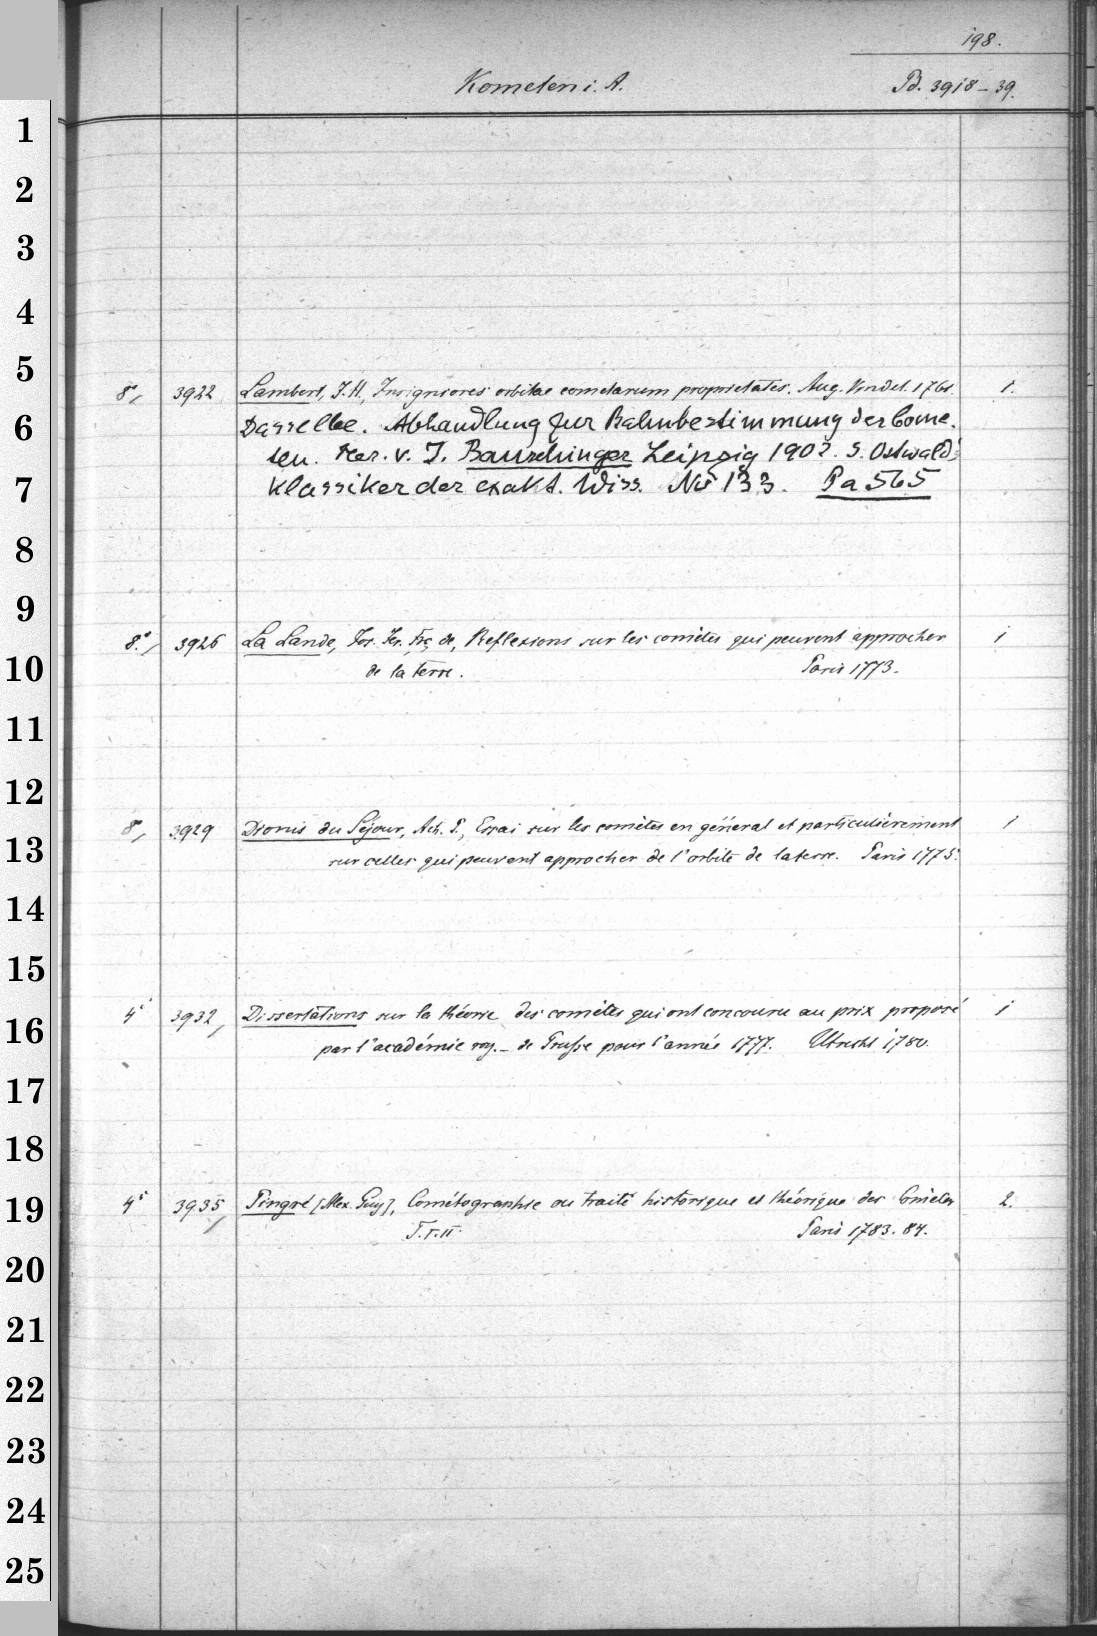 198.
Kometen i. A. Pd. 3918-39.
1
2
3
4
5
8°, 3922 Lambert, J. H., Insigniores orbitae cometarum proprietates. Aug. Vindel. 1761. 1.
6
Dasselbe. Abhandlung zur Bahnbestimmung der Come-
ten. v. J. Bauschinger Leipzig 1902. S. Ostwald's
7
Klassiker der exakt. Wiss. No 133. Pa 565
8
9
8°, 3926 La Lande, Jos. Jer. Frç de, Reflexions sur les comètes qui peuvent approcher 1
10
de la terre. Paris 1773.
11
12
8°, 3929 Dionis du Séjour, Ach. P., Essai sur les comètes en général et particulièrement 1
13
sur celles qui peuvent approcher de l'orbite de la terre. Paris 1775.
14
15
4° 3932, Dissertations sur la théorie des comètes qui ont concouru au prix proposé 1
16
par l'académie roy. de Prusse pour l'année 1777. Utrecht 1780.
17
18
4° 3935, Pingré [Alex. Guy], Cométographie ou traité historique et théorique des Comètes 2.
19
T. I. II. Paris 1783. 84.
20
21
22
23
24
25